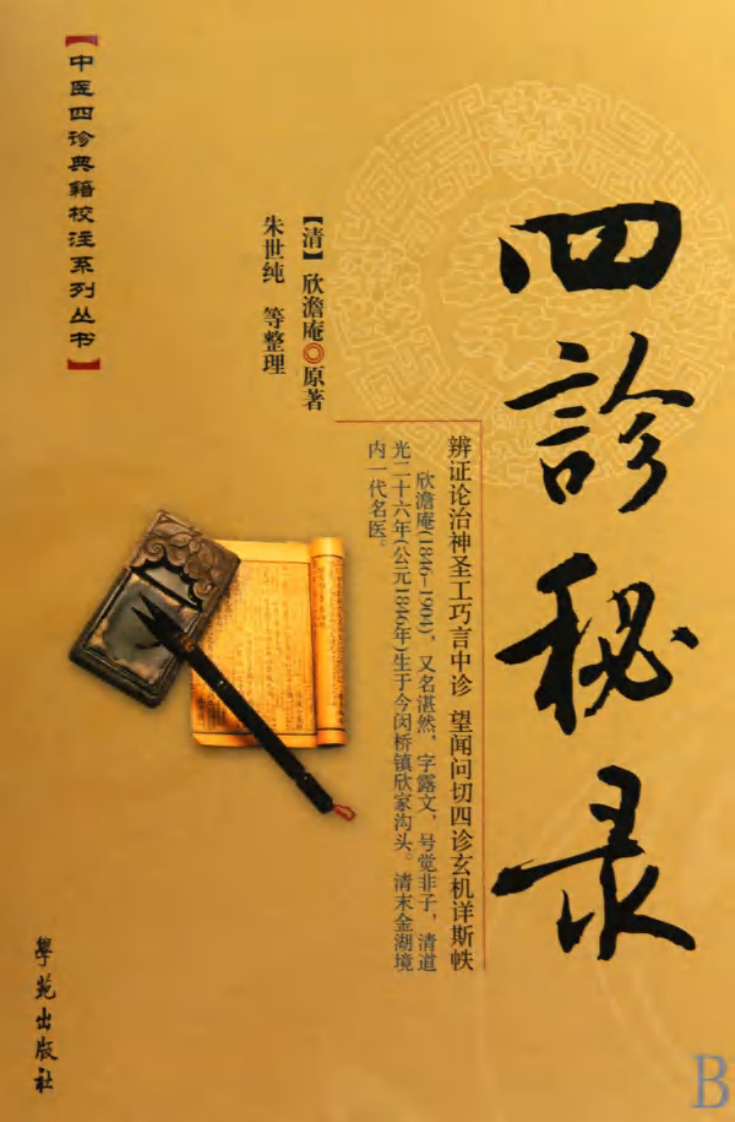 四診秘录
辨证论治神圣工巧言中诊 望闻问切四诊玄机详斯帙
欣澹庵(1846-1904),又名湛然,字露文,号觉非子,清道
光二十六年(公元1846年)生于今闵桥镇欣家沟头。清末金湖境
内一代名医。
【清】欣澹庵◎原著
朱世纯 等整理
【中医四诊典籍校注系列丛书】
學苑出版社
B